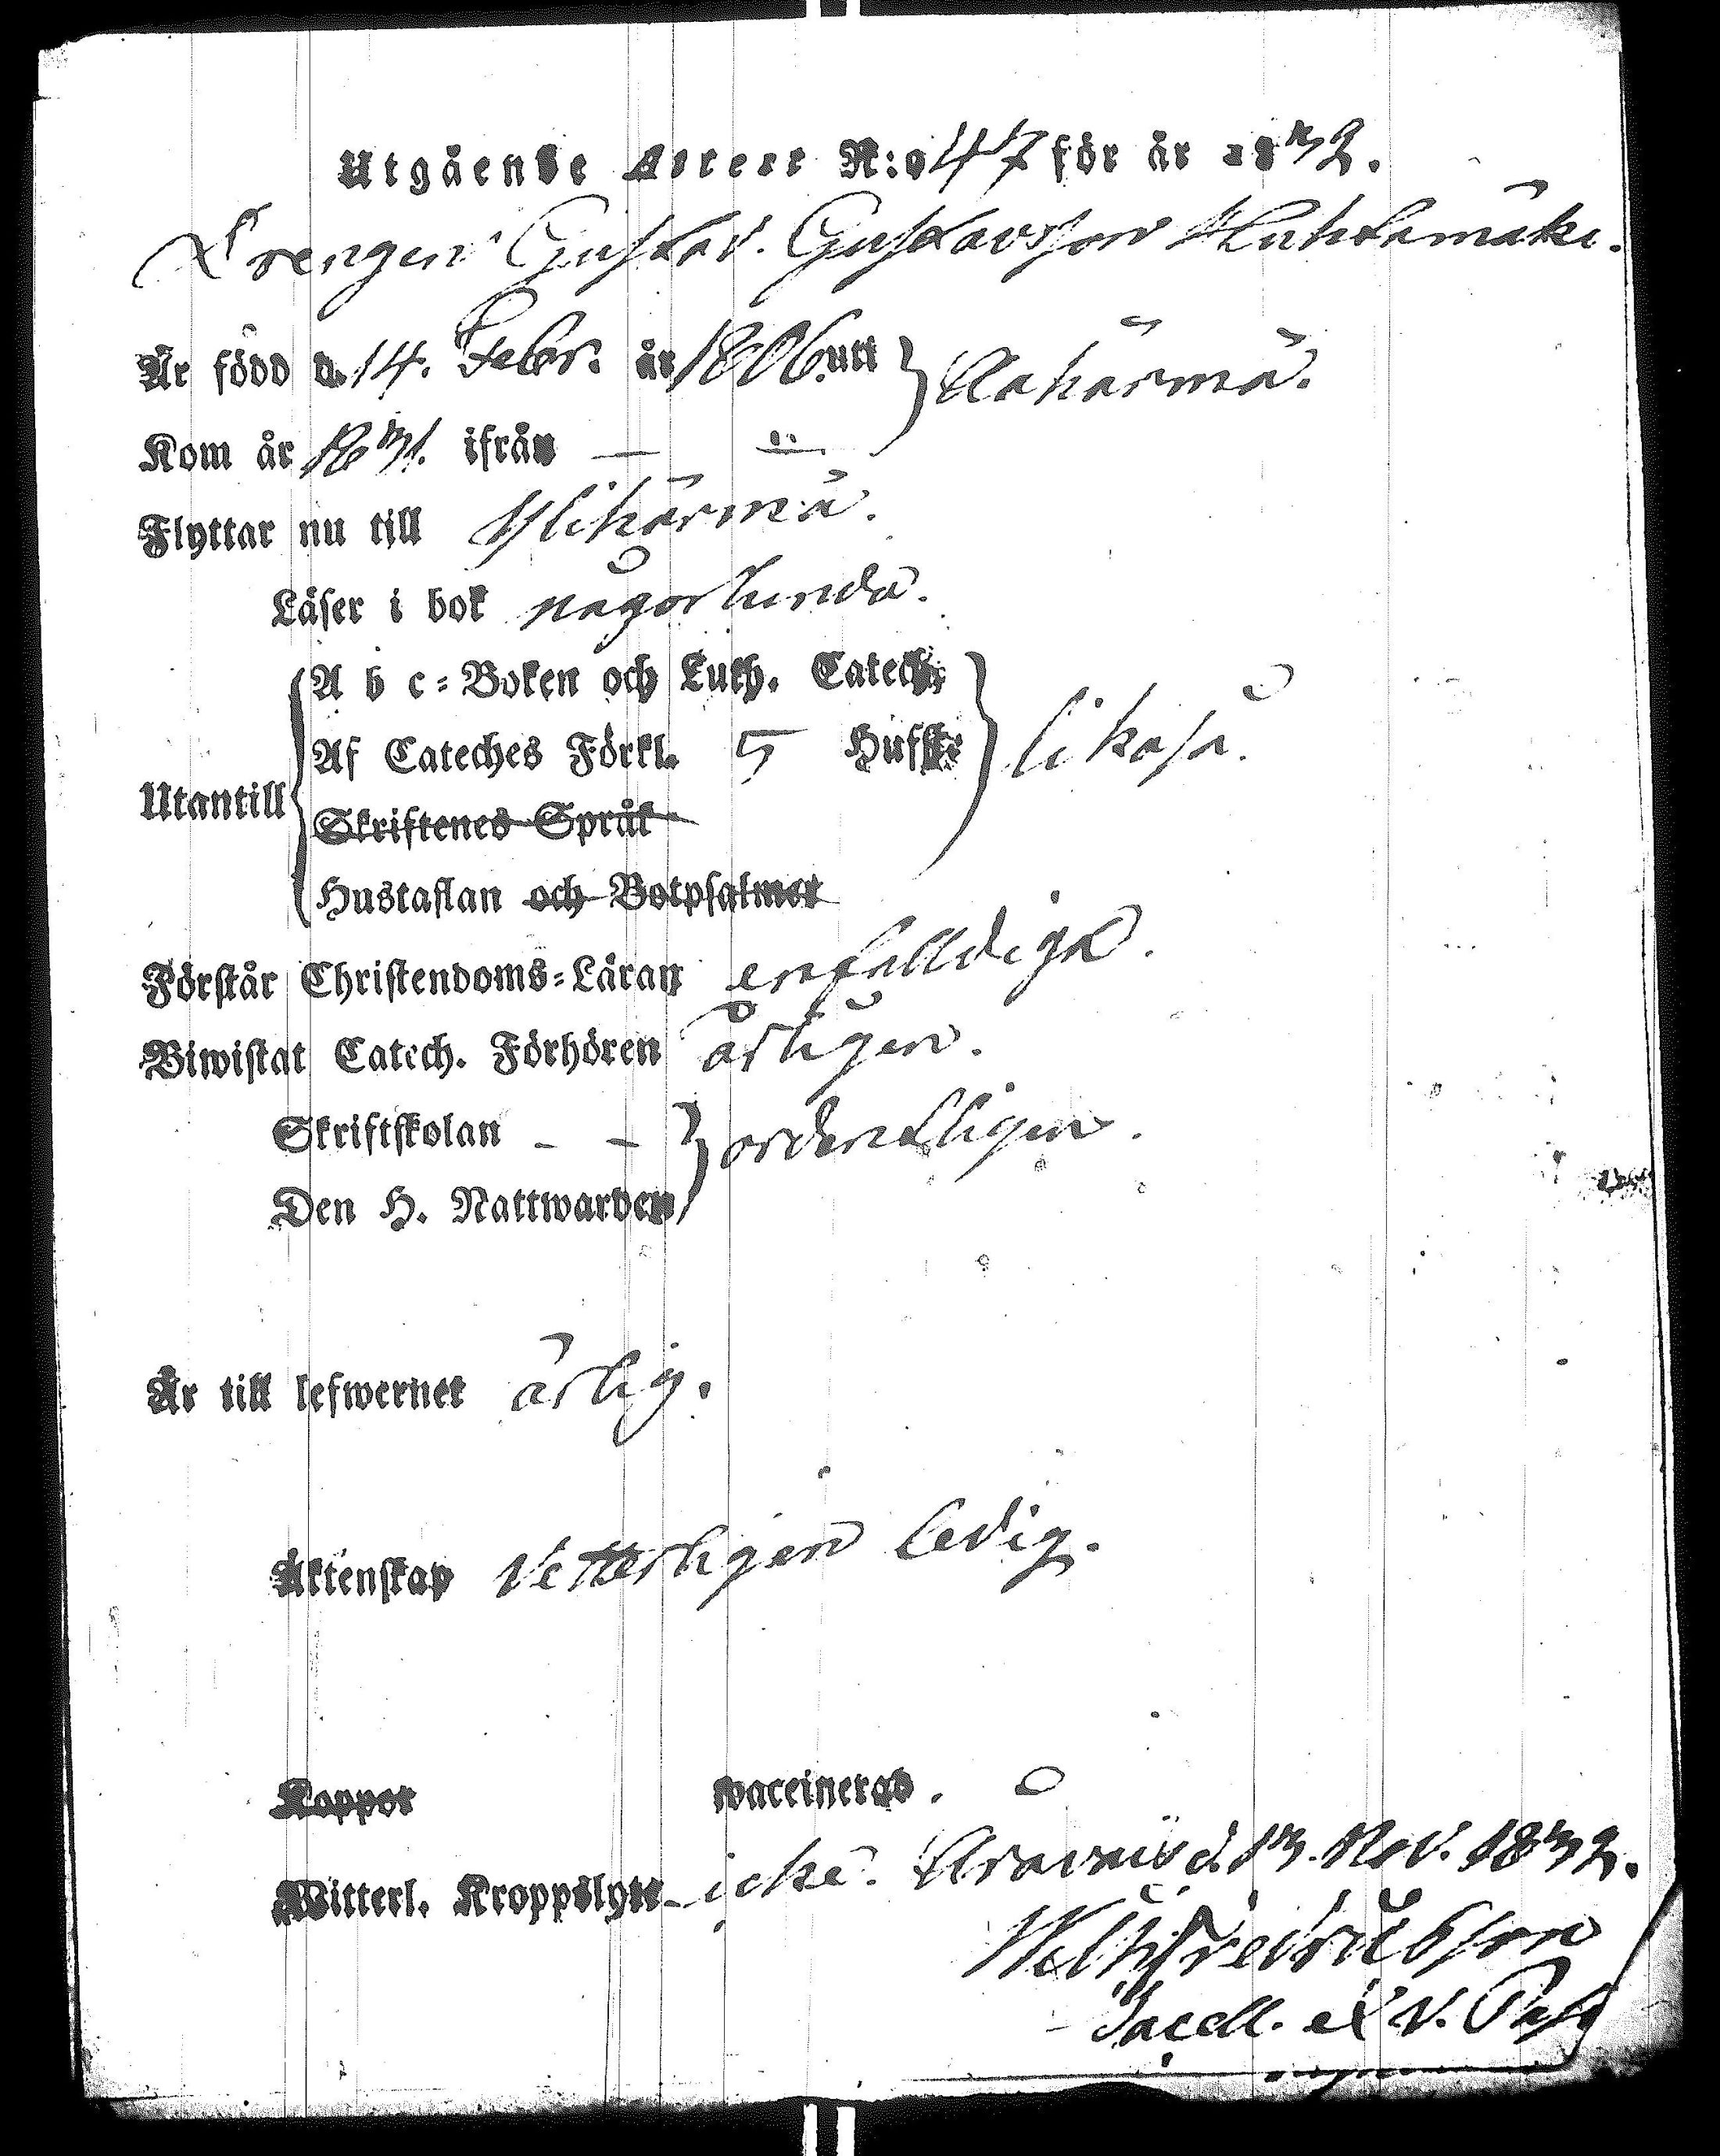 Utgående Attest N:o 47 för är 1832.
Drengen Gustav. Gustavsson Huhtamäki.
Är född d. 14. Febr. år 1806. uti } Alahärmä.
Kom år 1831. ifrån — "
Flyttar nu till Ylihärmä.
Läser i bok någorlunda.
A b c=Boken och Luth. Catech.
Af Cateches Förkl. 5 Hufst: } likaså.
Utantill
Skriftenes Språk
Hustaflan och Botpsalmer
Förstår Christendoms=Läran enfalldiga.
Biwistat Catech. Förhören årligen.
Skriftskolan - - } ordentligen.
Den H. Nattwarden
Är till lefwernet ärlig.
Äktenskap Vetterligen ledig.
Koppor waccinerad.
Witterl. Kroppslyte icke. Oravais d. 13. Nov. 1832.
Sacell. et V. Past